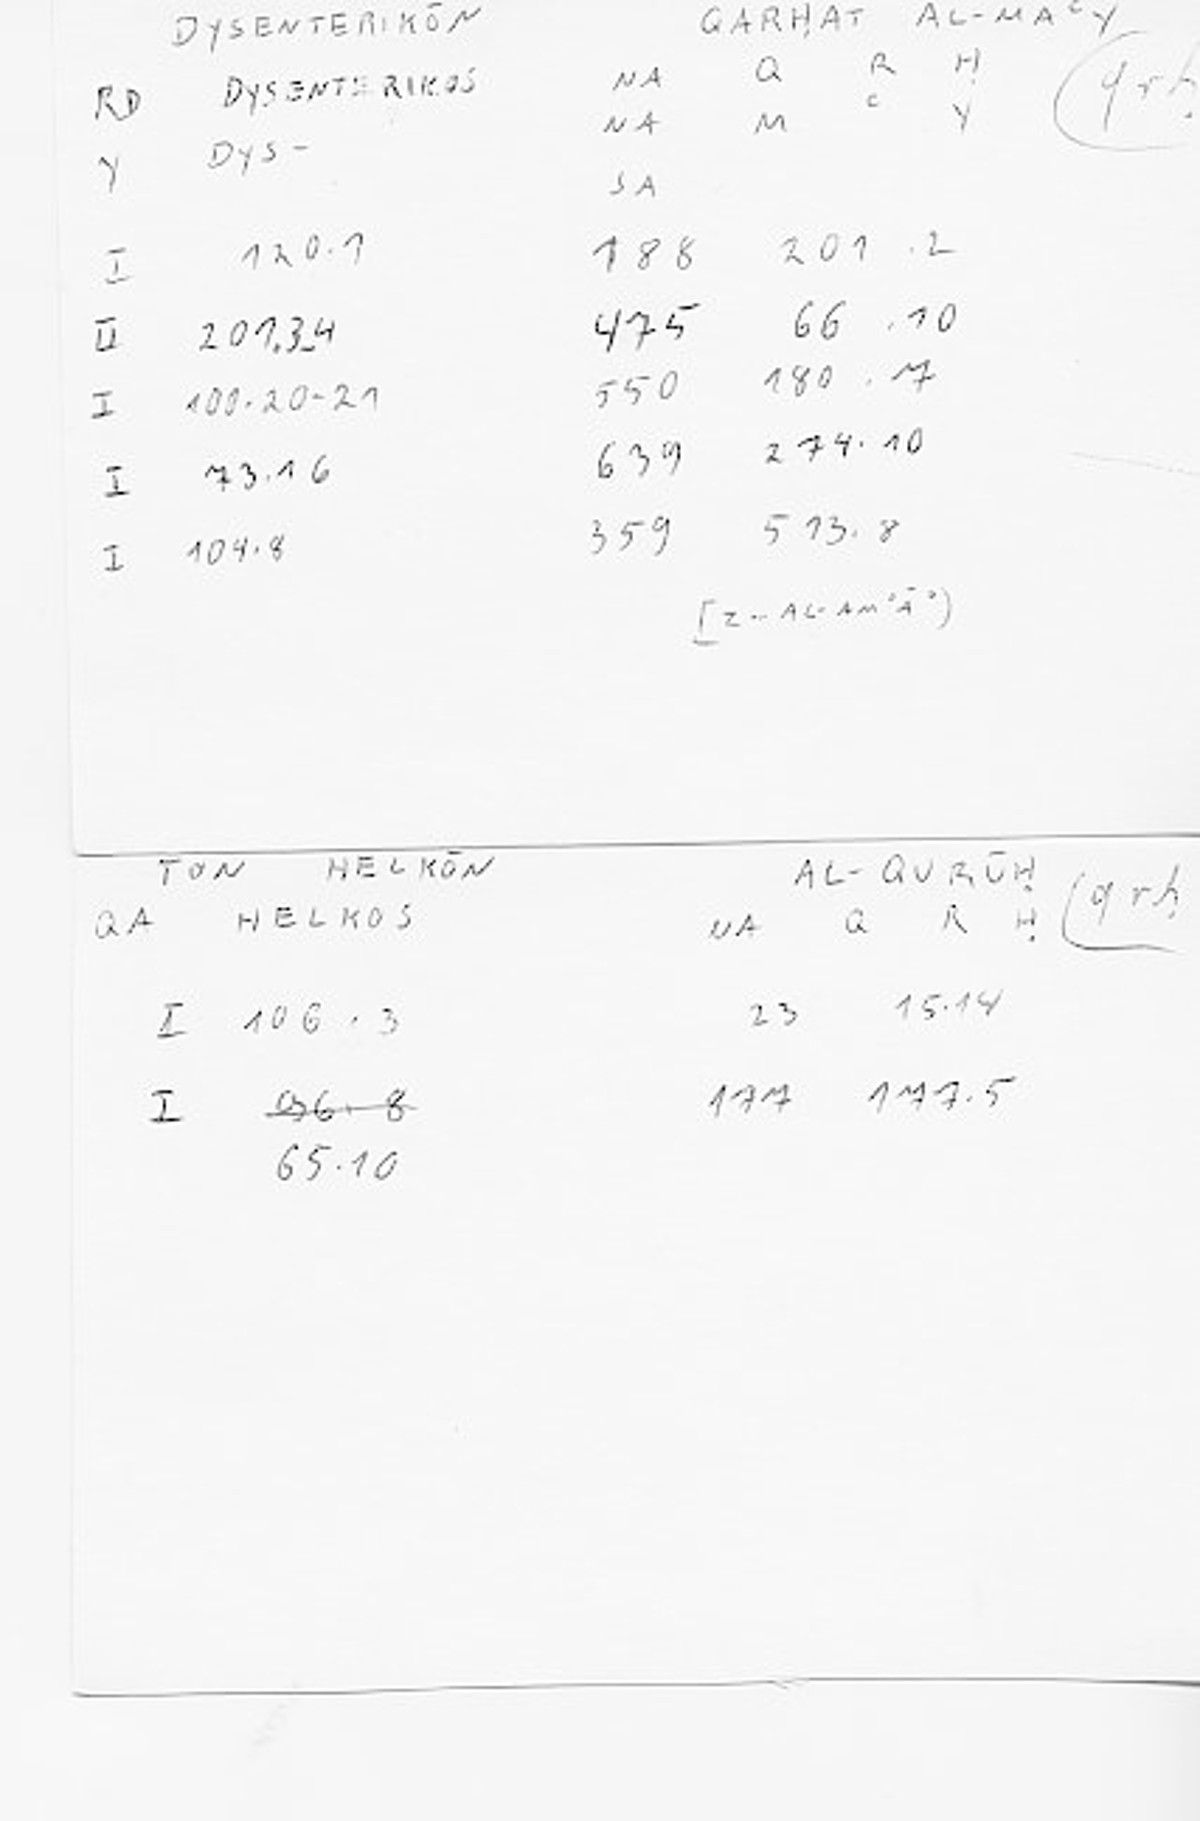 DYSENTERIKŌN QARḤAT AL-MAʿY
RD DYSENTERIKOS NA Q R Ḥ (qrḥ
Y DYS- NA M ʿ Y
SA
I 120.1 188 201.2
II 201.3,4 475 66.10
I 100.20-21 550 180.7
I 73.16 639 274.10
I 104.8 359 513.8
TON HELKŌN AL-QURŪḤ (qrḥ
QA HELKOS NA Q R Ḥ
I 106.3 23 15.14
I 96.8 177 177.5
65.10